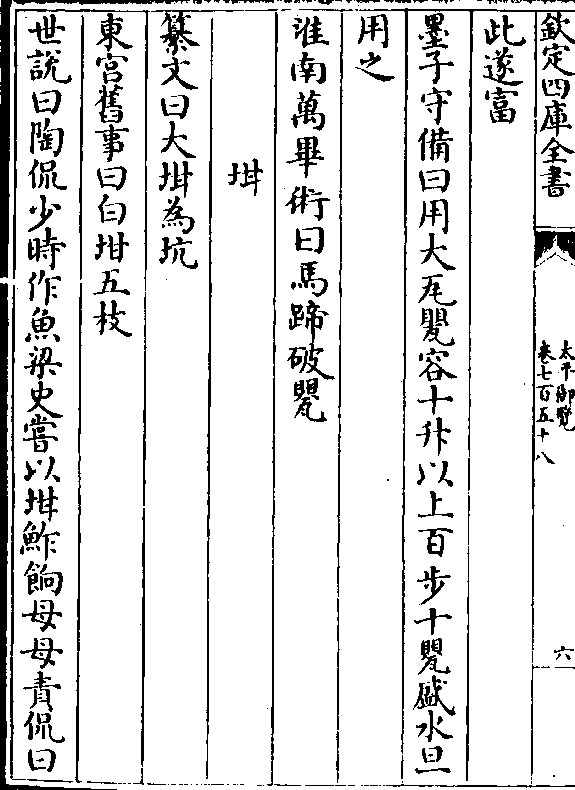 欽定四庫全書
太平御覽
卷七百五十八
六
此遂富
墨子守備曰用大瓦甖容十升以上百步十甖盛水且
用之
淮南萬畢術曰馬蹄破甖
坩
纂文曰大坩為坑
東宮舊事曰白坩五枚
世說曰陶侃少時作魚梁史嘗以坩鮓餉母母責侃曰